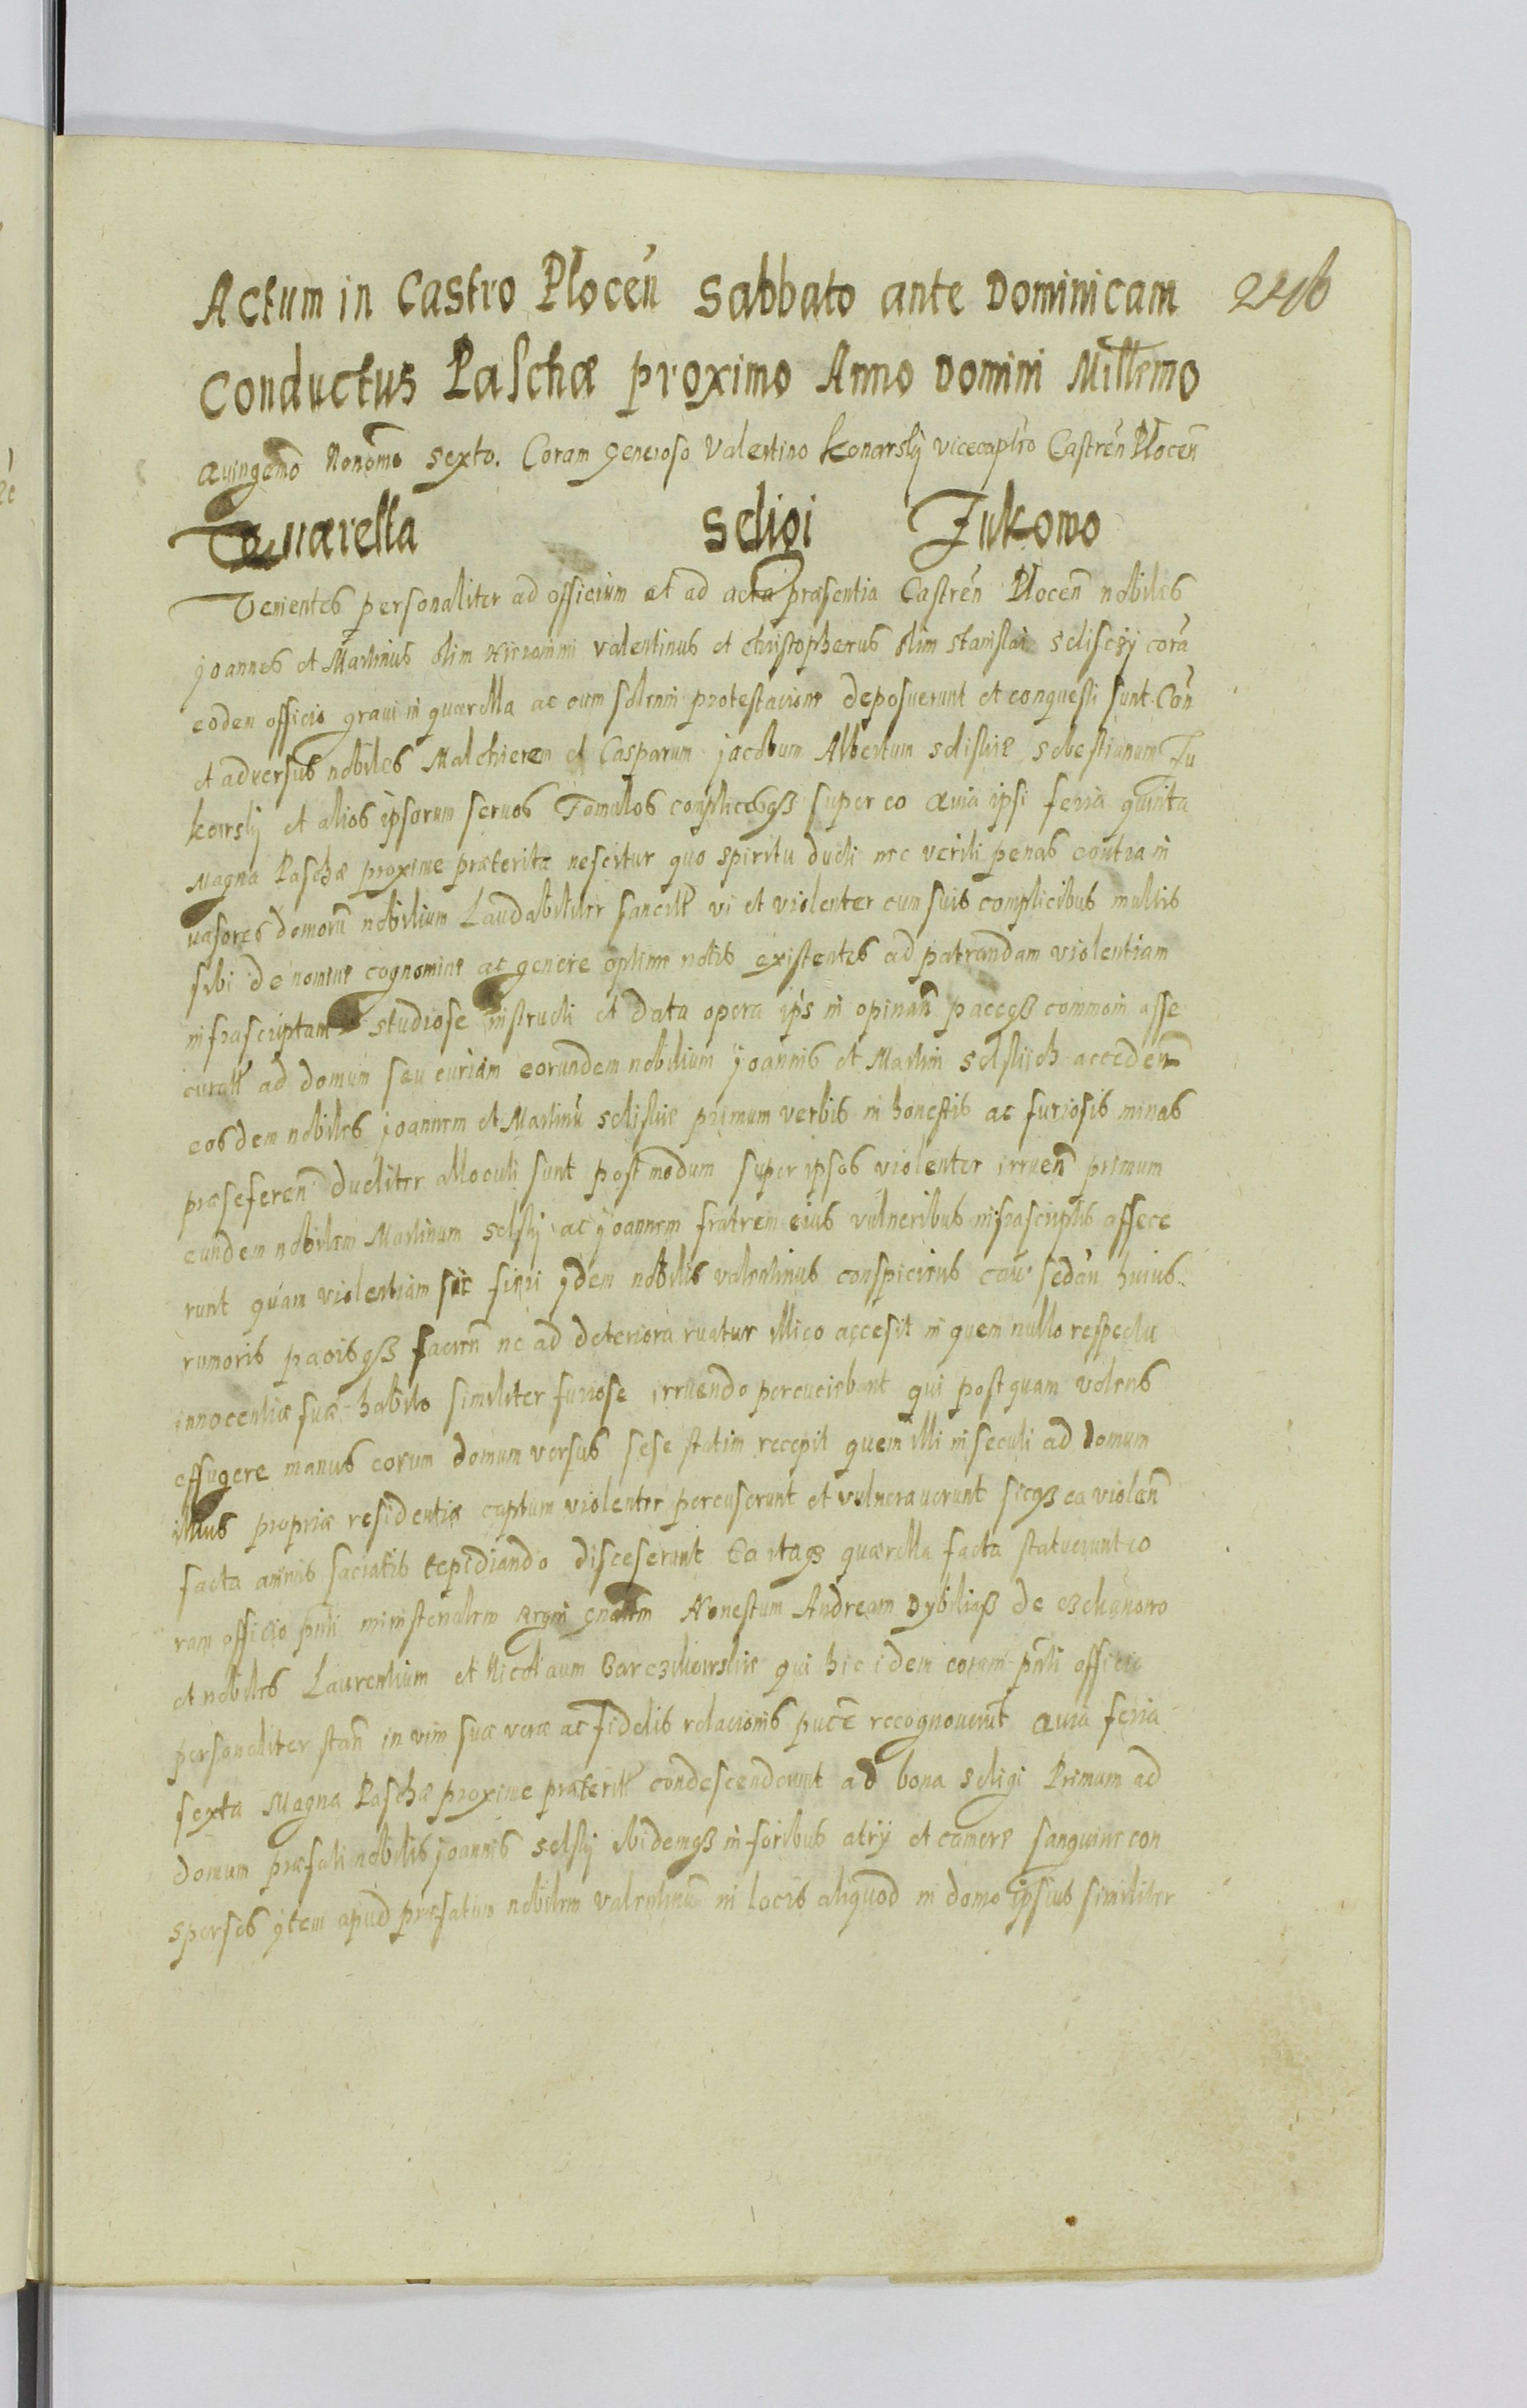 Actum in Castro Plocen̄ Sabbato ante Dominicam 246
Conductus Paschæ proximo Anno Domini Millemo
Quingemo Nonomo Sexto. Coram Generoso Valentino Konarskÿ vicecaptro Castren̄ Plocen̄
Quærella Seligi Zukowo
Venientes personaliter ad officium et ad acta præsentia Castren̄ Plocen̄ nobiles
Joannes et Martinus olim Hieronimi Valentinus et Christopherus olim Stanislai seliscÿ corā
eodem officio gravi in quærella ac cum solenni protestacione deposuerunt et conquesti sunt. Con
et adversus nobiles Malchieren et Casparum Jacobum Albertum seliskie Sebestianum Zu
kowskÿ et alios ipsorum servos Famulos complicesqß super eo Quia ipsi feria quinta
Magna Paschæ proxime præterita nescitur quo spiritu ducti nec veriti penas contra in
vasores domorū nobilium Laudabiliter sancitꝭ vi et violenter cum suis complicibus multis
sibi de nomine cognomine ac genere optime notis existentes ad patrandam violentiam
infrascriptam studiose instructi et data opera ip̄s in opinan̄ paceqß commoni asse
curatꝭ ad domum seu curiam eorundem nobilium Joannis et Martini Selskich acceden̄
eosdem nobiles Joannem et Martinū seliskie primum verbis in honestis ac furiosis minas
præseferen̄ dueliter allocuti sunt postmodum super ipsos violenter irruen̄ primum
eundem nobilem Martinum Selskÿ ac Joannem fratrem eius vulneribus infrascriptis affece
runt quam violentiam sic fieri ÿdem nobilis valentinus conspiciens cau͛ sedan̄ huius
rumoris pacisqß facien̄ ne ad deteriora ruatur illico accesit in quem nullo respectu
innocentiæ suæ habito similiter furiose irruendo percuciebant qui postquam volens
effugere manus eorum domum versus sese statim recepit quem illi inseculi ad domum
illius propriæ residentiæ captum violenter percuserunt et vulneraverunt sicqß ea violen̄
facta animis saciatis tepidiando disceserunt Ea itaqß quærella facta statuerunt co
ram officio pn̄ti ministerialem Regni gn̄alem Honestum Andream Dybiliaß de
et nobiles Laurentium et Nicolaum qui hic idem coram pn̄ti officio
personaliter stan̄ in vim suæ veræ ac fidelis relacionis recognoverunt Quia feria
sexta Magna Paschæ proxime præteritꝭ condescenderunt ad bona Seligi Primum ad
domum præfati nobilis Joannis Selskÿ ibidemqß in foribus atrÿ et camere sanguine con
spersos ÿtem apud præfatum nobilem valentinū in locis aliquod in domo ipsius similiter